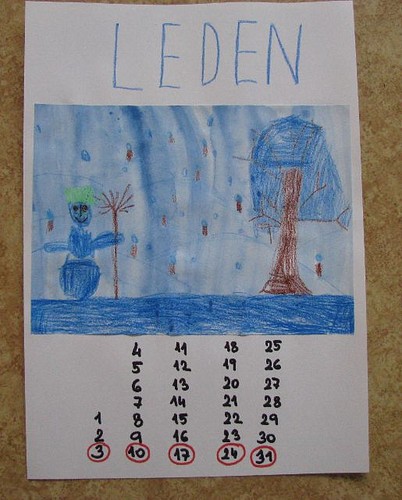 LEDEN
4 11 18 25
5 12 19 26
6 13 20 27
7 14 21 28
1 8 15 22 29
2 9 16 23 30
3 10 17 24 31